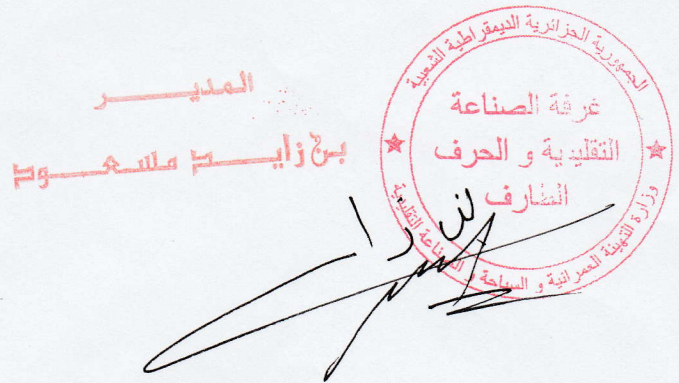 المديــر
بن زايــد مسعــود
الجمهورية الجزائرية الديمقراطية الشعبية
غرفة الصناعة
التقليدية و الحرف
الطارف
وزارة التهيئة العمرانية و السياحة و الصناعة التقليدية